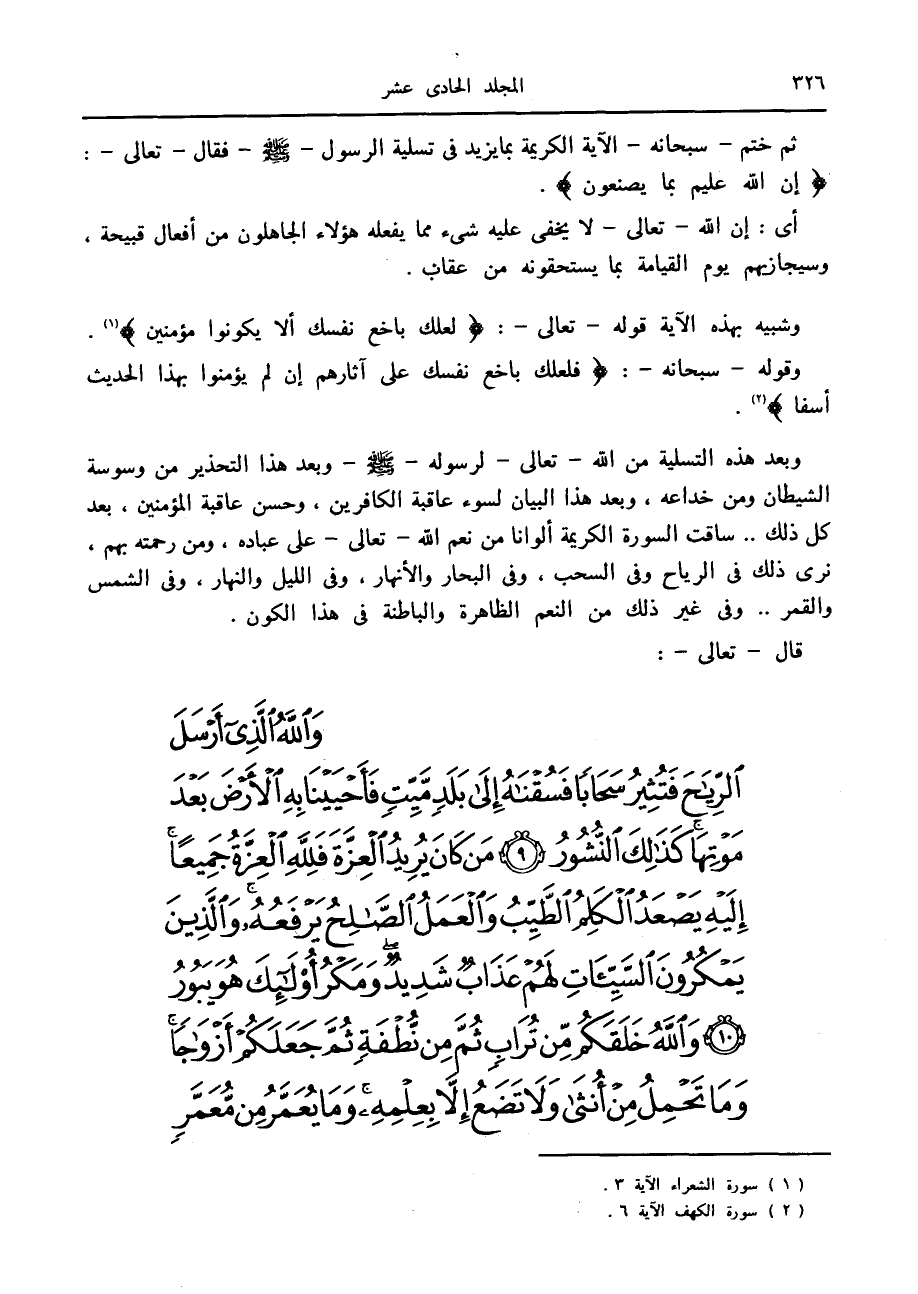 ٣٢٦
المجلد الحادى عشر
ثم ختم – سبحانه – الآية الكريمة بمايزيد فى تسلية الرسول – ﷺ – فقال – تعالى – :
﴿ إن الله عليم بما يصنعون ﴾ .
أى : إن الله – تعالى – لا يخفى عليه شىء مما يفعله هؤلاء الجاهلون من أفعال قبيحة ،
وسيجازيهم يوم القيامة بما يستحقونه من عقاب .
وشبيه بهذه الآية قوله – تعالى – : ﴿ لعلك باخع نفسك ألا يكونوا مؤمنين ﴾(١) .
وقوله – سبحانه – : ﴿ فلعلك باخع نفسك على آثارهم إن لم يؤمنوا بهذا الحديث
أسفا ﴾(٢) .
وبعد هذه التسلية من الله – تعالى – لرسوله – ﷺ – وبعد هذا التحذير من وسوسة
الشيطان ومن خداعه ، وبعد هذا البيان لسوء عاقبة الكافرين ، وحسن عاقبة المؤمنين ، بعد
كل ذلك .. ساقت السورة الكريمة ألوانا من نعم الله – تعالى – على عباده ، ومن رحمته بهم ،
نرى ذلك فى الرياح وفى السحب ، وفى البحار والأنهار ، وفى الليل والنهار ، وفى الشمس
والقمر .. وفى غير ذلك من النعم الظاهرة والباطنة فى هذا الكون .
قال – تعالى – :
وَٱللَّهُ ٱلَّذِىٓ أَرْسَلَ
ٱلرِّيَٰحَ فَتُثِيرُ سَحَابًا فَسُقْنَٰهُ إِلَىٰ بَلَدٍ مَّيِّتٍ فَأَحْيَيْنَا بِهِ ٱلْأَرْضَ بَعْدَ
مَوْتِهَا ۚ كَذَٰلِكَ ٱلنُّشُورُ ﴿٩﴾ مَن كَانَ يُرِيدُ ٱلْعِزَّةَ فَلِلَّهِ ٱلْعِزَّةُ جَمِيعًا ۚ
إِلَيْهِ يَصْعَدُ ٱلْكَلِمُ ٱلطَّيِّبُ وَٱلْعَمَلُ ٱلصَّٰلِحُ يَرْفَعُهُۥ ۚ وَٱلَّذِينَ
يَمْكُرُونَ ٱلسَّيِّـَٔاتِ لَهُمْ عَذَابٌ شَدِيدٌ ۖ وَمَكْرُ أُو۟لَٰٓئِكَ هُوَ يَبُورُ
﴿١٠﴾ وَٱللَّهُ خَلَقَكُم مِّن تُرَابٍ ثُمَّ مِن نُّطْفَةٍ ثُمَّ جَعَلَكُمْ أَزْوَٰجًا ۚ
وَمَا تَحْمِلُ مِنْ أُنثَىٰ وَلَا تَضَعُ إِلَّا بِعِلْمِهِۦ ۚ وَمَا يُعَمَّرُ مِن مُّعَمَّرٍ
( ١ ) سورة الشعراء الآية ٣ .
( ٢ ) سورة الكهف الآية ٦ .